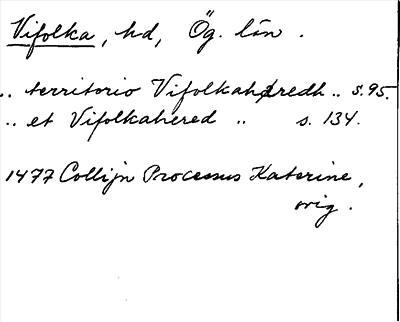 Vifolka, hd, Ög. län.
.. territorio Vifolkahæredh .. s. 95.
.. et Vifolkahered .. s. 134.
1477 Collijn Processus Katerine,
orig.